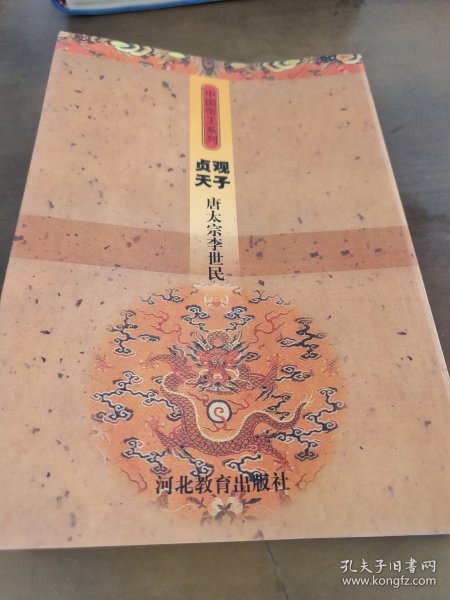 中国帝王系列
贞观
天子
唐太宗李世民
河北教育出版社
孔夫子旧书网
www.kongfz.com